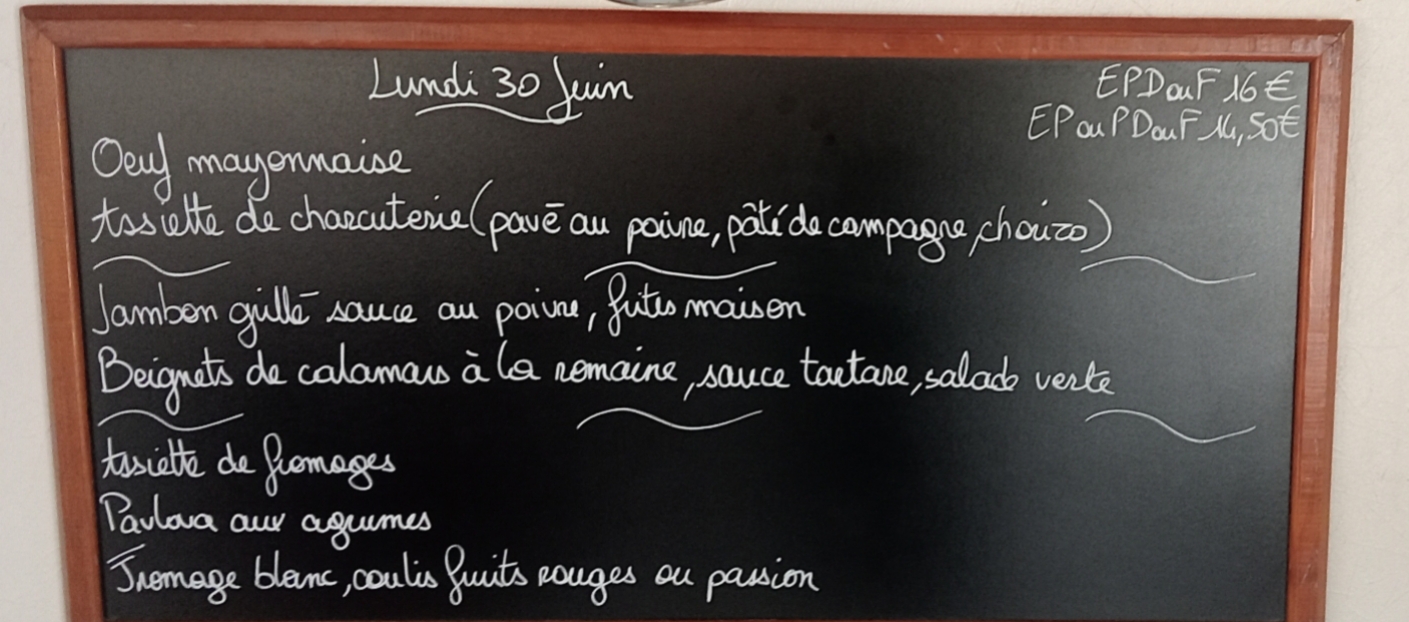 Lundi 30 Juin
EPDouF 16€
EPouPDouF 14,50€
Oeuf mayonnaise
Assiette de charcuterie (pavé au poivre, pâté de campagne, chorizo)
Jambon grillé sauce au poivre, frites maison
Beignets de calamars à la romaine, sauce tartare, salade verte
Assiette de fromages
Pavlova aux agrumes
Fromage blanc, coulis fruits rouges ou passion